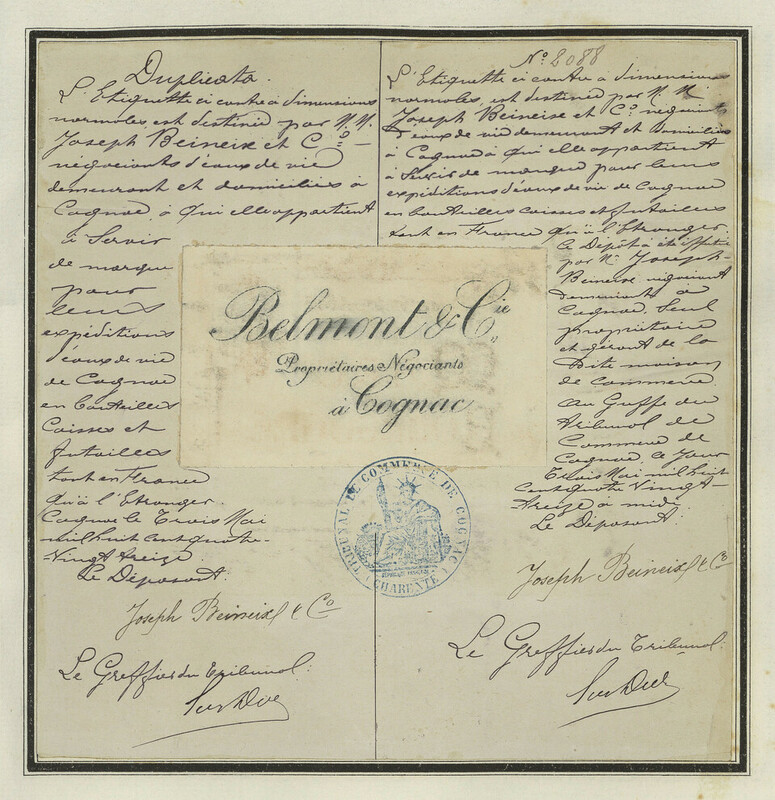 Duplicata.
L'Etiquette ci contre à dimensions
normales est destinée par M. M.
Joseph Beineix et Co
négociants d'eaux de vie
demeurant et domiciliés à
Cognac, à qui elle appartient
à servir
de marque
pour
leurs
expéditions
d'eaux de vie
de Cognac
en bouteilles
caisses et
futailles
tant en France
qu'à l'Etranger.
Cognac le Trois Mai
mil huit cent quatre-
vingt treize.
Le Déposant.
Joseph Beineix & Co
Le Greffier du Tribunal:
No 2088
L'Etiquette ci contre à dimensions
normales, est destinée par M. M.
Joseph Beineix et Co négociants
d'eaux de vie demeurant et domiciliés
à Cognac à qui elle appartient
à servir de marque pour leurs
expéditions d'eaux de vie de Cognac
en bouteilles caisses et futailles
tant en France qu'à l'Etranger.
Ce Dépôt à été effectué
par Mr Joseph
Beineix négociant
demeurant à
Cognac, Seul
propriétaire
et gérant de la
dite maison
de commerce
au Greffe du
Tribunal de
Commerce de
Cognac ce jour
Trois Mai mil huit
cent quatre vingt
treize à midi
Le Déposant.
Joseph Beineix & Co
Le Greffier du Tribunal:
Belmont & Cie
Propriétaires, Négociants
à Cognac
TRIBUNAL DE COMMERCE DE COGNAC
(CHARENTE)